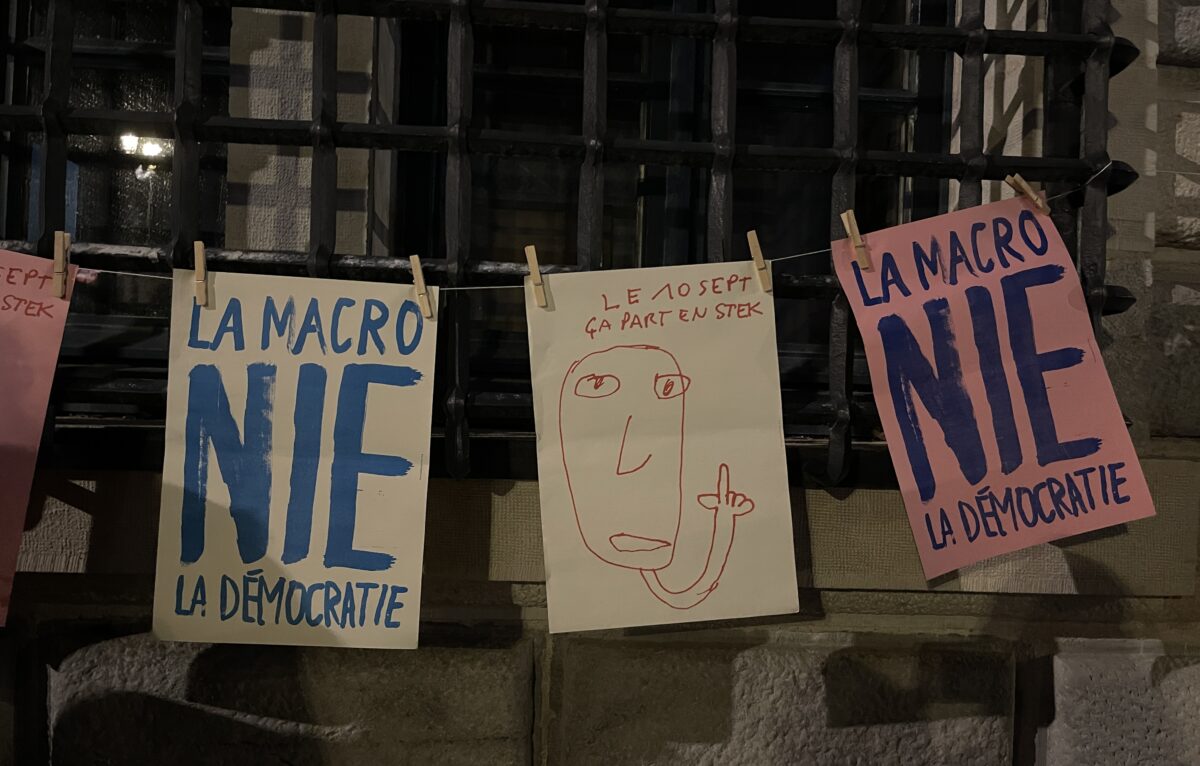 SEPT
STEK
LA MACRO
NIE
LA DÉMOCRATIE
LE 10 SEPT
ÇA PART EN STEK
LA MACRO
NIE
LA DÉMOCRATIE